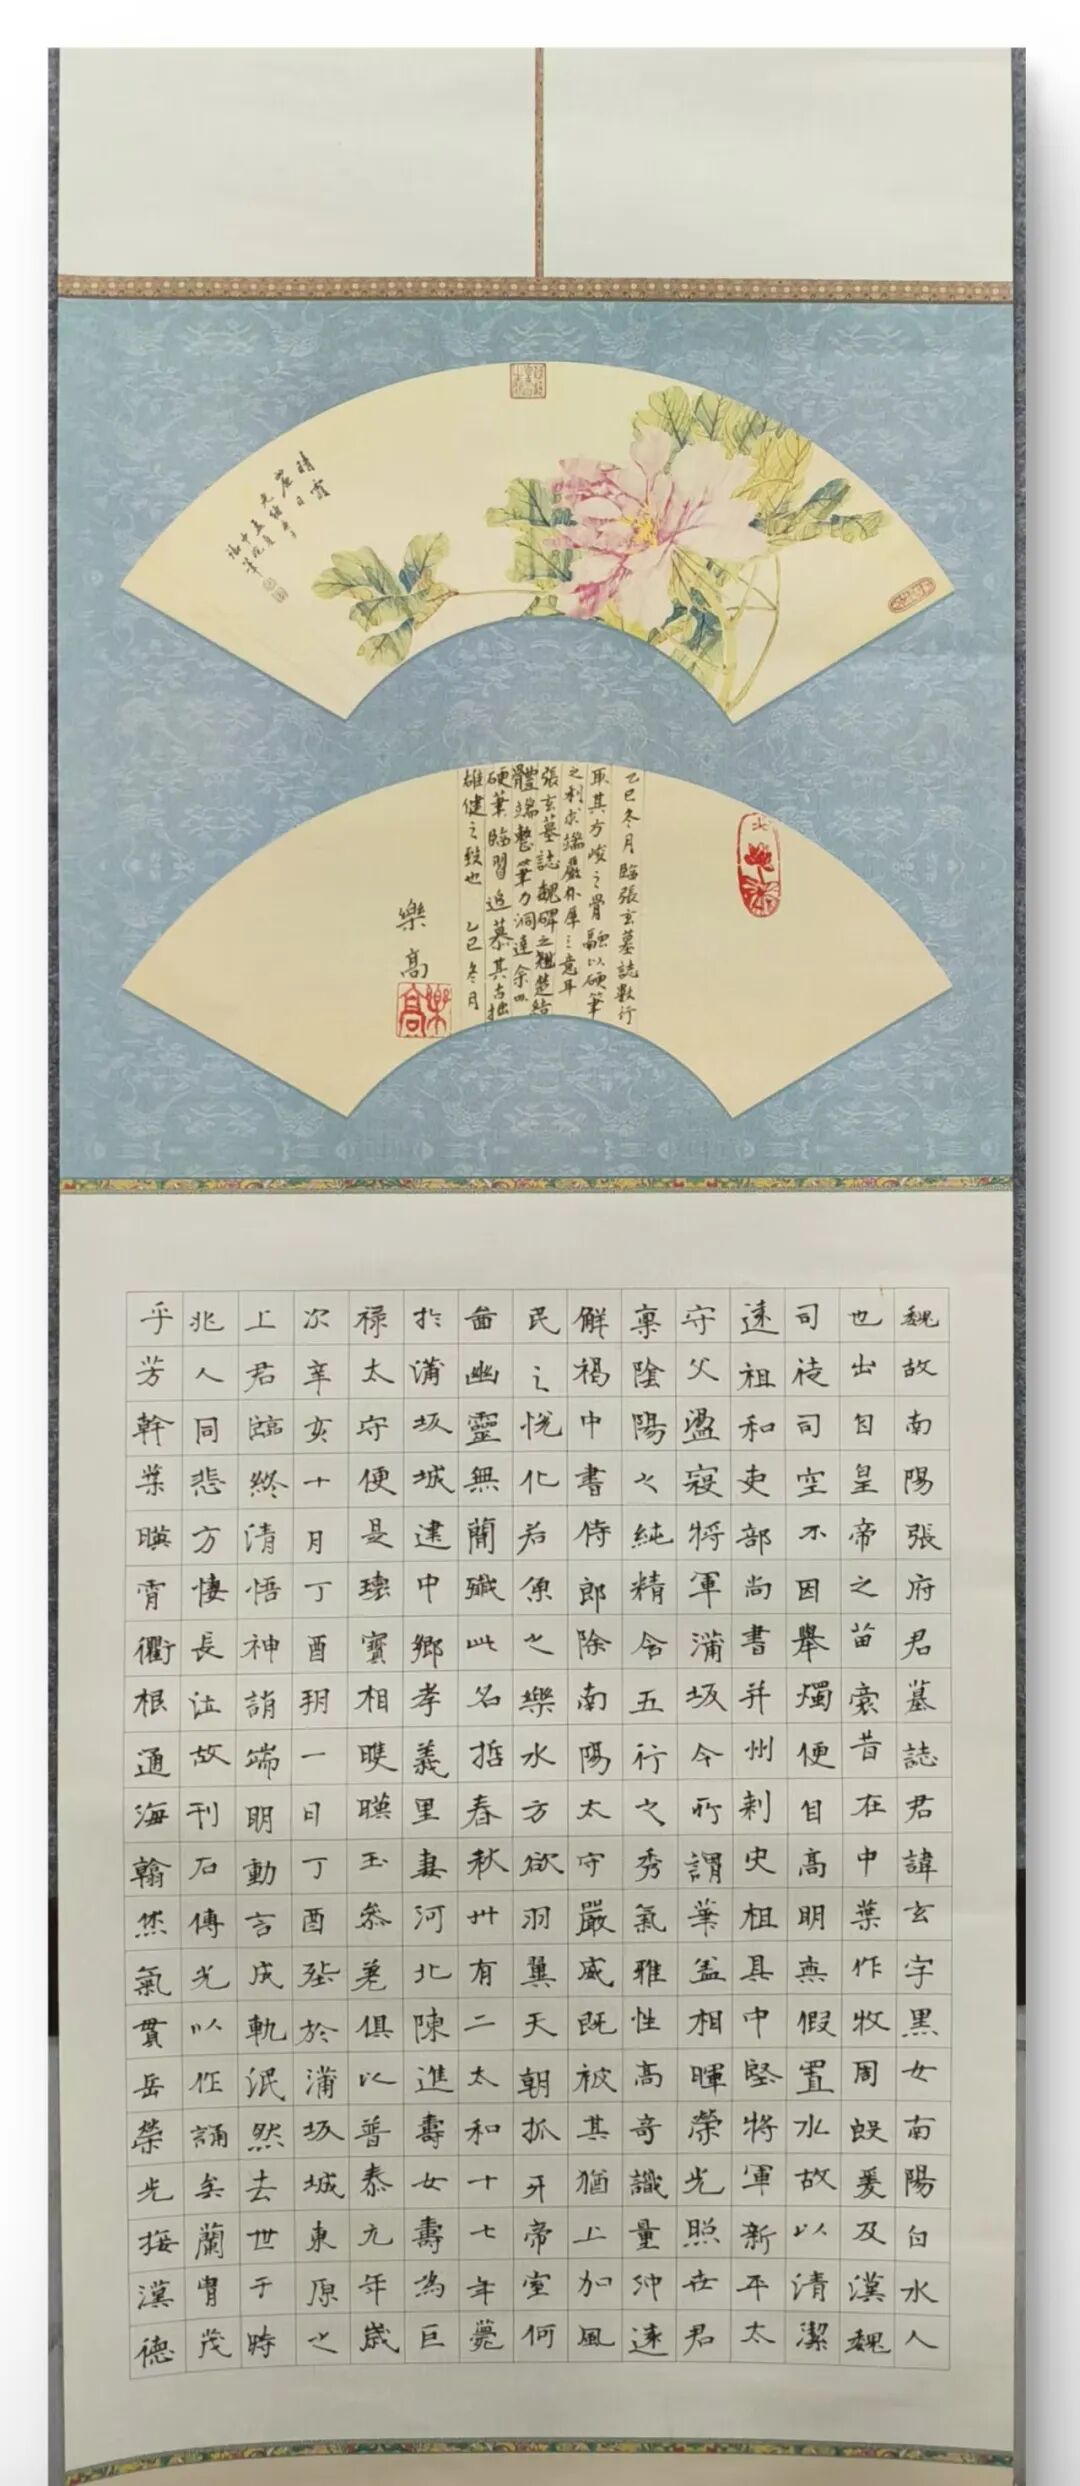 晴
乙巳冬月臨張玄墓誌數行
取其方峻之骨融以硬筆
之利求端嚴朴厚之意耳
張玄墓誌魏碑之翹楚結
體端整筆力洞達余以
硬筆臨習追慕其古拙
雄健之致也 乙巳冬月
樂高
樂高
魏故南陽張府君墓誌君諱玄字黑女南陽白水人
也出自皇帝之苗裔昔在中葉作牧周殷爰及漢魏
司徒司空不因舉燭便自高明無假置水故以清潔
遠祖和吏部尚書并州刺史祖具中堅將軍新平太
守父盪寇將軍蒲坂令所謂華蓋相暉榮光照世君
稟陰陽之純精含五行之秀氣雅性高奇識量沖遠
解褐中書侍郎除南陽太守嚴威既被其猶上加風
民之悅化若魚之樂水方欲羽翼天朝抓牙帝室何
啚幽靈無簡殲此名哲春秋卅有二太和十七年薨
於蒲坂城建中鄉孝義里妻河北陳進壽女壽為巨
祿太守便是瓌寶相暎玉參差俱以普泰元年歲
次辛亥十月丁酉朔一日丁酉葬於蒲坂城東原之
上君臨終清悟神誚端明動言成軌泯然去世于時
兆人同悲方悽長泣故刊石傳光以作誦矣蘭冑茂
乎芳幹葉暎霄衢根通海翰然氣貫岳榮光接漢德